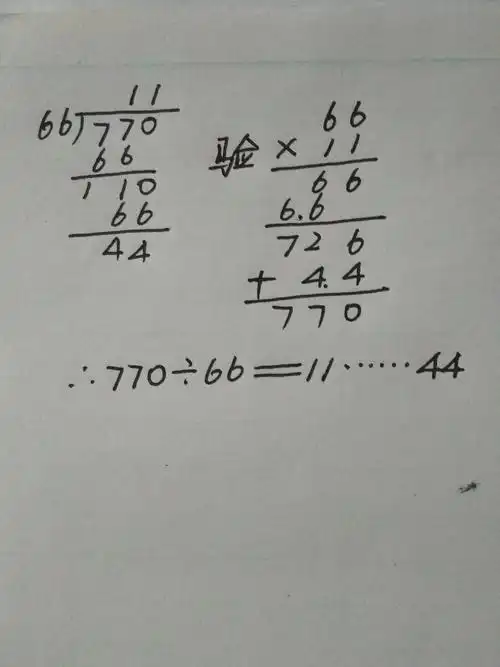 11
66)770
66
110
66
44
验
66
×11
66
6.6
726
+4.4
770
∴770÷66=11……44